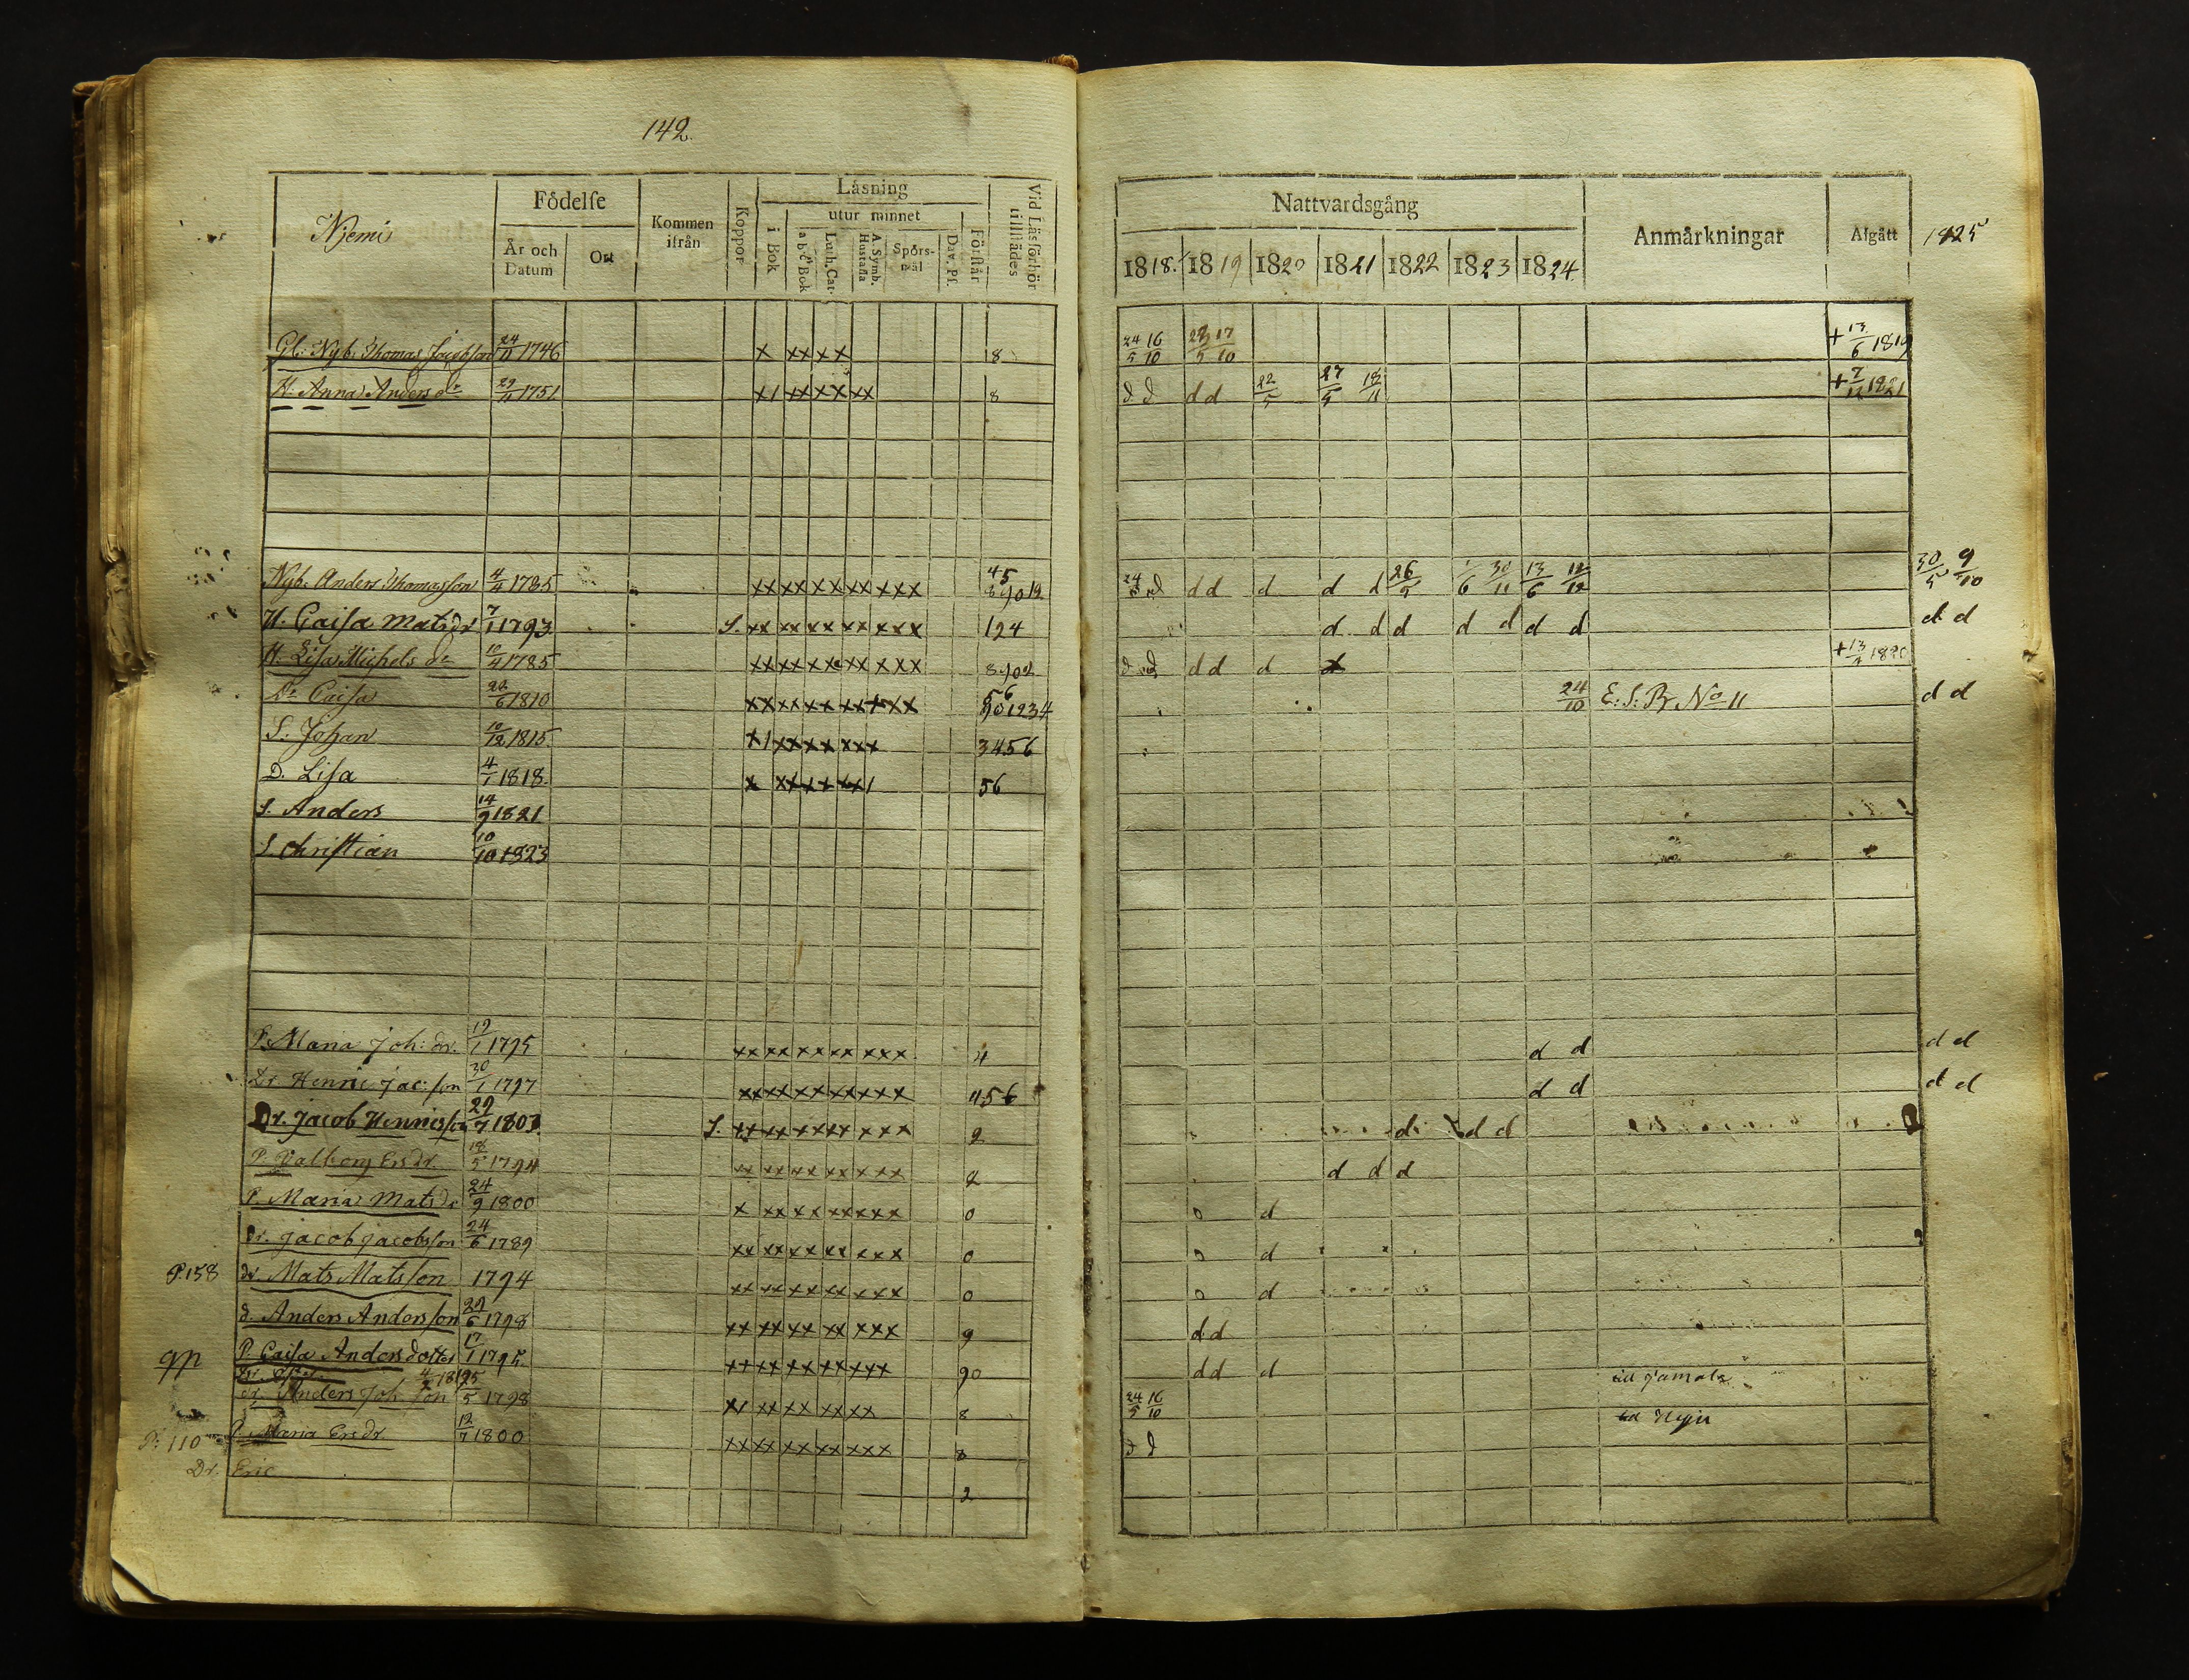 142.
Njemi
Födelse
År och Datum
Ort
Kommen ifrån
Koppor
Läsning
i Bok
utur minnet
a b c Bok
Luth. Cat.
A. Symb. Hustafla
Spörs-mål
Dav. Ps.
Förstår
Vid Läsförhör tillstädes
Gl. Nyb. Thomas Jacobsson 24/11 1746 x xx xx 8
H. Anna Anders dr 29/11 1751 x/ xx xx xx 8
Nyb. Anders Thomasson 4/4 1785 xx xx xx xx xxx 45 89012
H. Caisa Matsdr 7/1 1793 S. xx xx xx xx xxx 124
H. Lisa Michels dr 10/4 1785 xx xx xx xx xxx 8902
Dr Caisa 22/6 1810 xx xx xx xx xxx 56 901234
S. Johan 10/12 1815 x/ xx xx xxx 3456
D. Lisa 4/1 1818. x xx xx xx/ 56
S. Anders 14/9 1821
S. Christian 10/10 1823
P. Maria Joh: dr. 19/1 1795 xx xx xx xx xxx 4
Dr. Henric Jac:son 30/1 1797 xx xx xx xx xxx 456
Dr. Jacob Hennicsson 29/7 1803 S. xx xx xx xx xxx 2
P. Valborg Ersdr. 18/5 1794 xx xx xx xx xxx 2
P. Maria Matsdr 24/9 1800 x xx xx xx xxx 0
Dr. Jacob Jacobsson 24/6 1789 xx xx xx xx xxx 0
P. 158 dr. Mats Matsson 1794 xx xx xx xx xxx 0
d. Anders Andersson 29/6 1798 xx xx xx xx xxx 9
P. Caisa Andersdotter 17/1 1795 xx xx xx xx xxx 90
dr. Anders Joh. son 25/5 1798 xx xx xx xx xx 8
P. 110 P. Maria Ersdr. 12/7 1800 xx xx xx xx xxx 8
Dr. Eric 2
Nattvardsgång
1818. 1819 1820 1821 1822 1823 1824.
Anmärkningar
Afgått
1825
24/5 16/10 23/5 17/10 + 13/6 1819
d d d d 22/5 27/5 18/11 + 7/12 1821
24/5 d d d d d d 26/5 1/6 30/11 13/6 12/12 30/5 9/10
d d d d d d d d d
d d d d d + 13/4 1820
24/10 E: S: Pr No 11 d d
d d d d
d d d d
d d d
d d d
d
d
d
d d
d d d till Jamala
24/5 16/10
d d